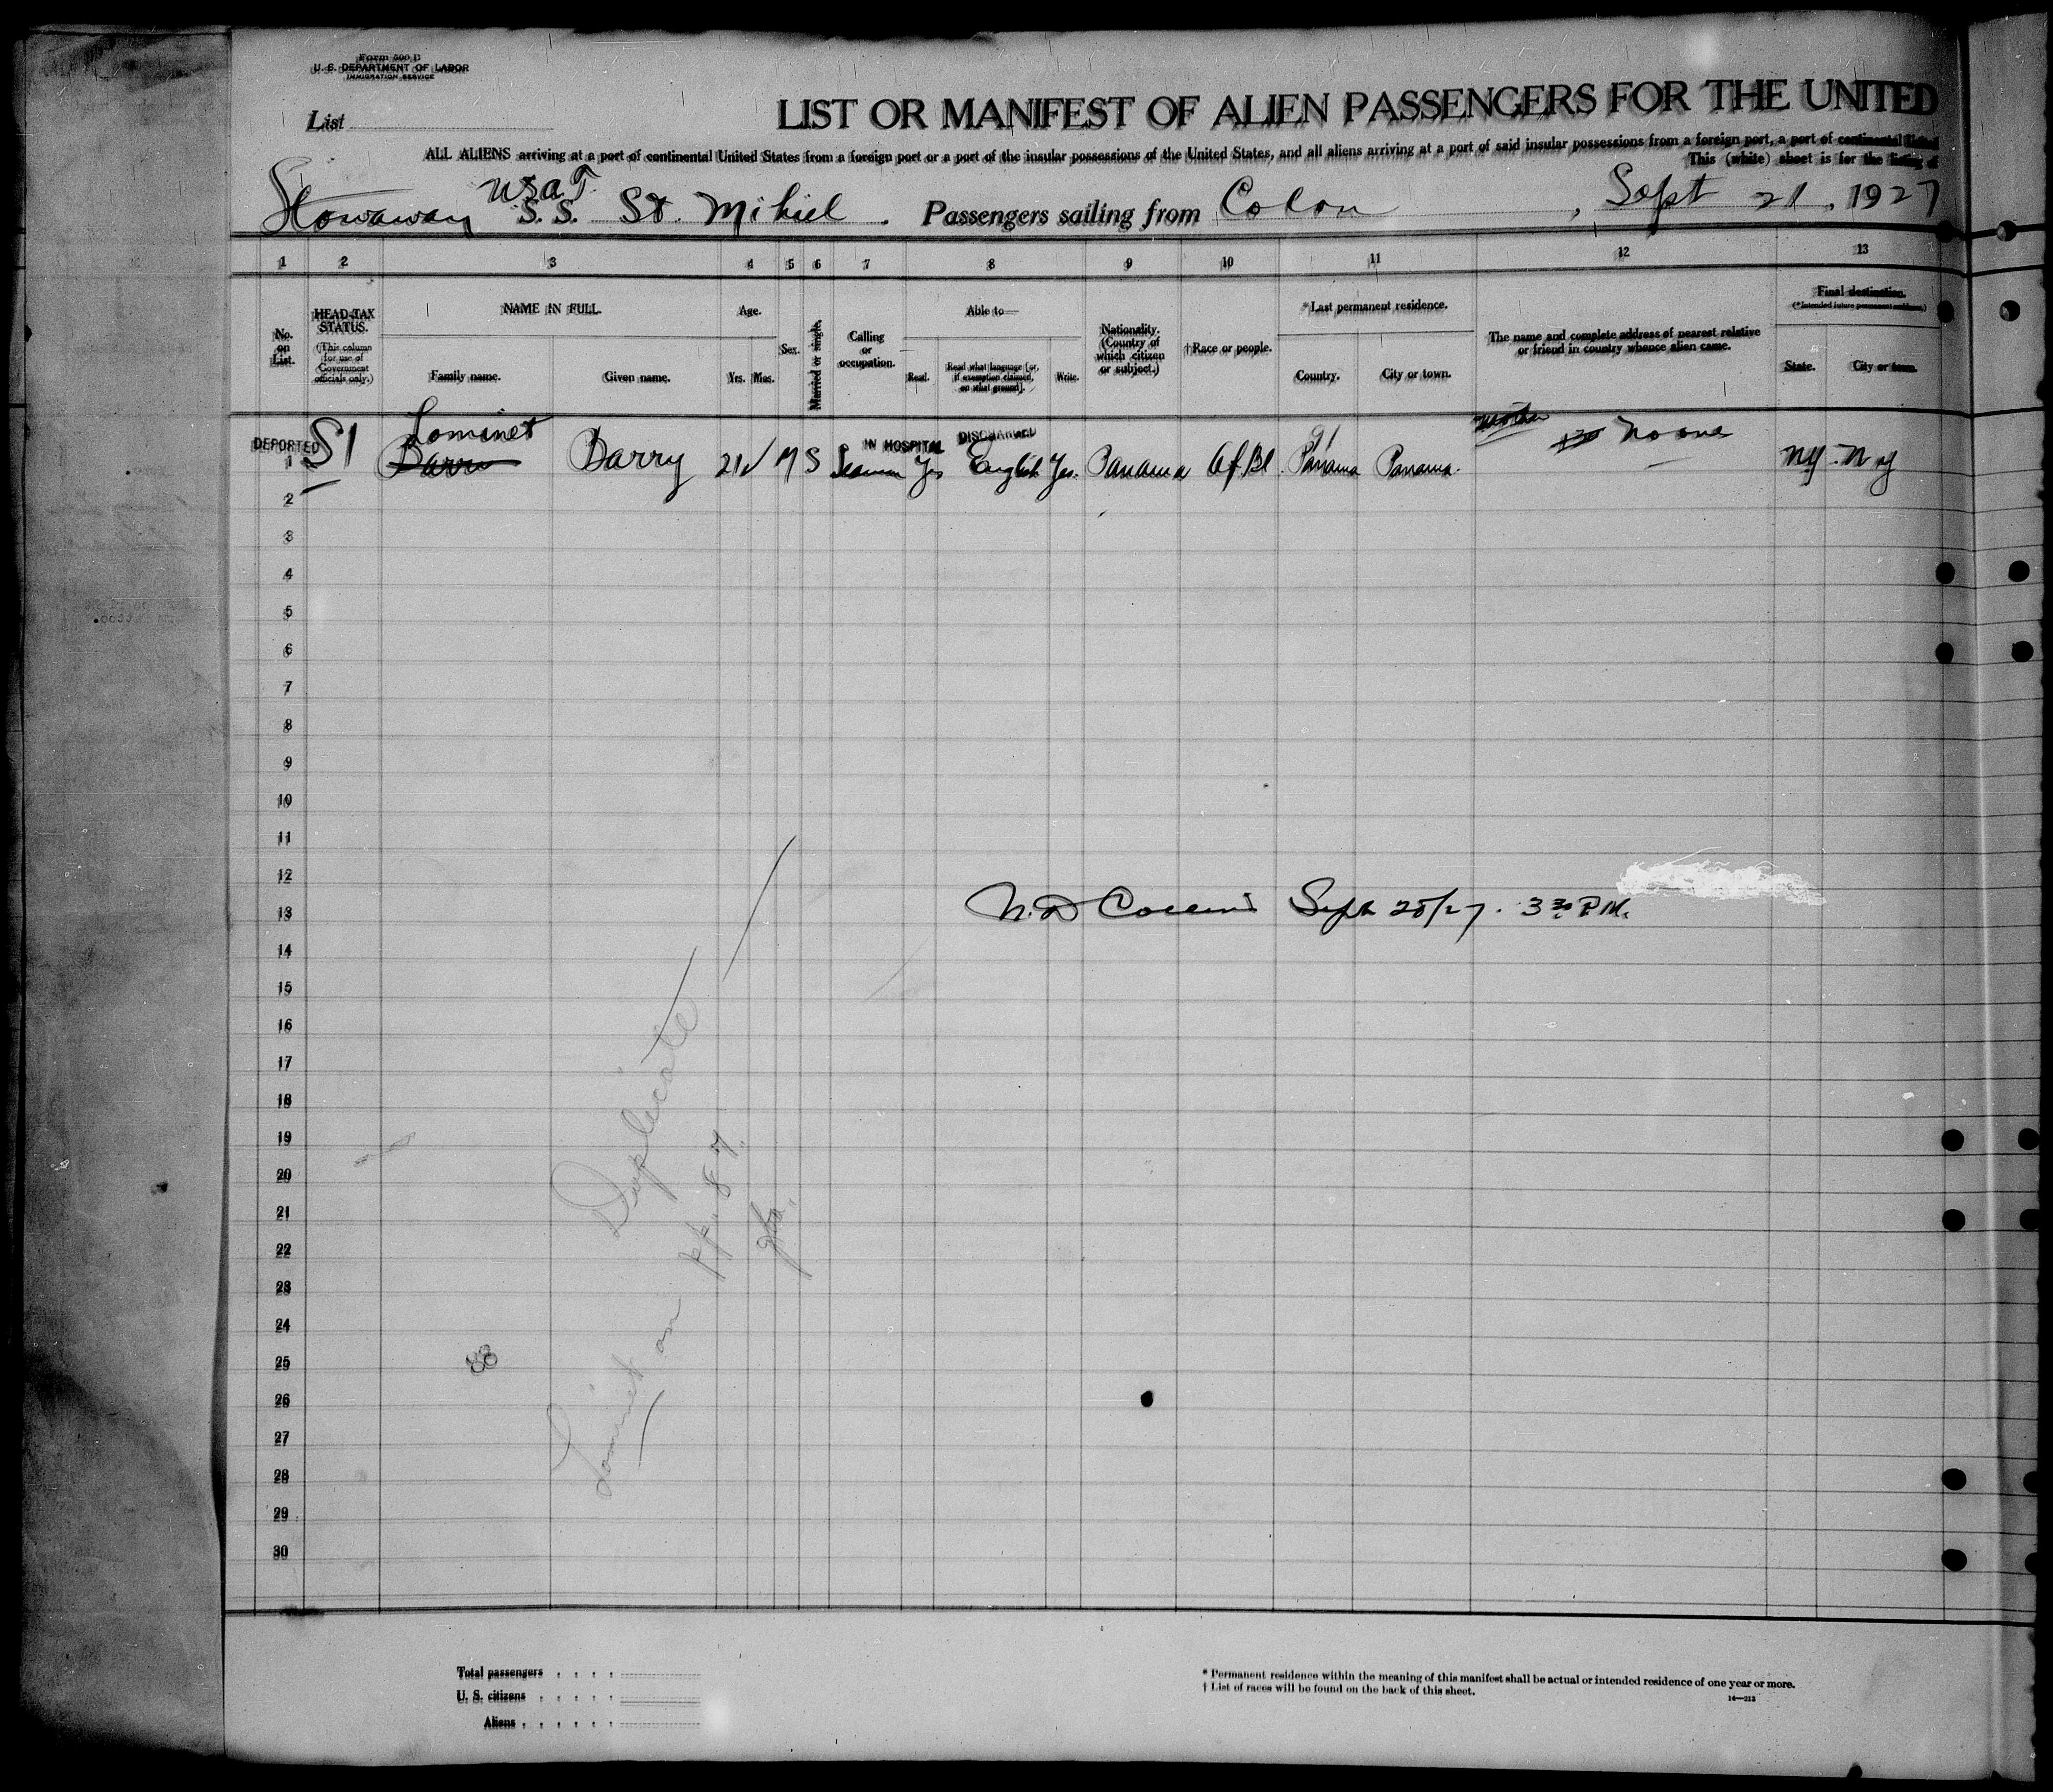 Form 500 B
U. S. DEPARTMENT OF LABOR
IMMIGRATION SERVICE
List
LIST OR MANIFEST OF ALIEN PASSENGERS FOR THE UNITED
ALL ALIENS arriving at a port of continental United States from a foreign port or a port of the insular possessions of the United States, and all aliens arriving at a port of said insular possessions from a foreign port, a port of continental United
This (white) sheet is for the listing of
Stowaway USAT S. S. St. Mihiel Passengers sailing from Colon, Sept 21, 1927
1 2 3 4 5 6 7 8 9 10 11 12 13
No. on List.
HEAD-TAX STATUS. (This column for use of Government officials only.)
NAME IN FULL
Family name. Given name.
Age. Yrs. Mos.
Sex.
Married or single.
Calling or occupation.
Able to—
Read. Read what language [or, if exemption claimed, on what ground]. Write.
Nationality. (Country of which citizen or subject.)
†Race or people.
*Last permanent residence.
Country. City or town.
The name and complete address of nearest relative or friend in country whence alien came.
Final destination.
(*Intended future permanent address)
State. City or town.
Lominet
IN HOSPITAL DISCHARGED 91 mother
DEPORTED 1 S1 Barry 21 M S Seaman Yes English Yes. Panama Af. Bl. Panama Panama. No one NY N Y
2
3
4
5
6
7
8
9
10
11
12
13 Sept 28/27. 3 30 P.M.
14
15
16
17
18
19
20
21
22
23
24
25
26
27
28
29
30
Duplicate
Lominet on pp. 87
88
Total passengers
U. S. citizens
Aliens
* Permanent residence within the meaning of this manifest shall be actual or intended residence of one year or more.
† List of races will be found on the back of this sheet.
14—213